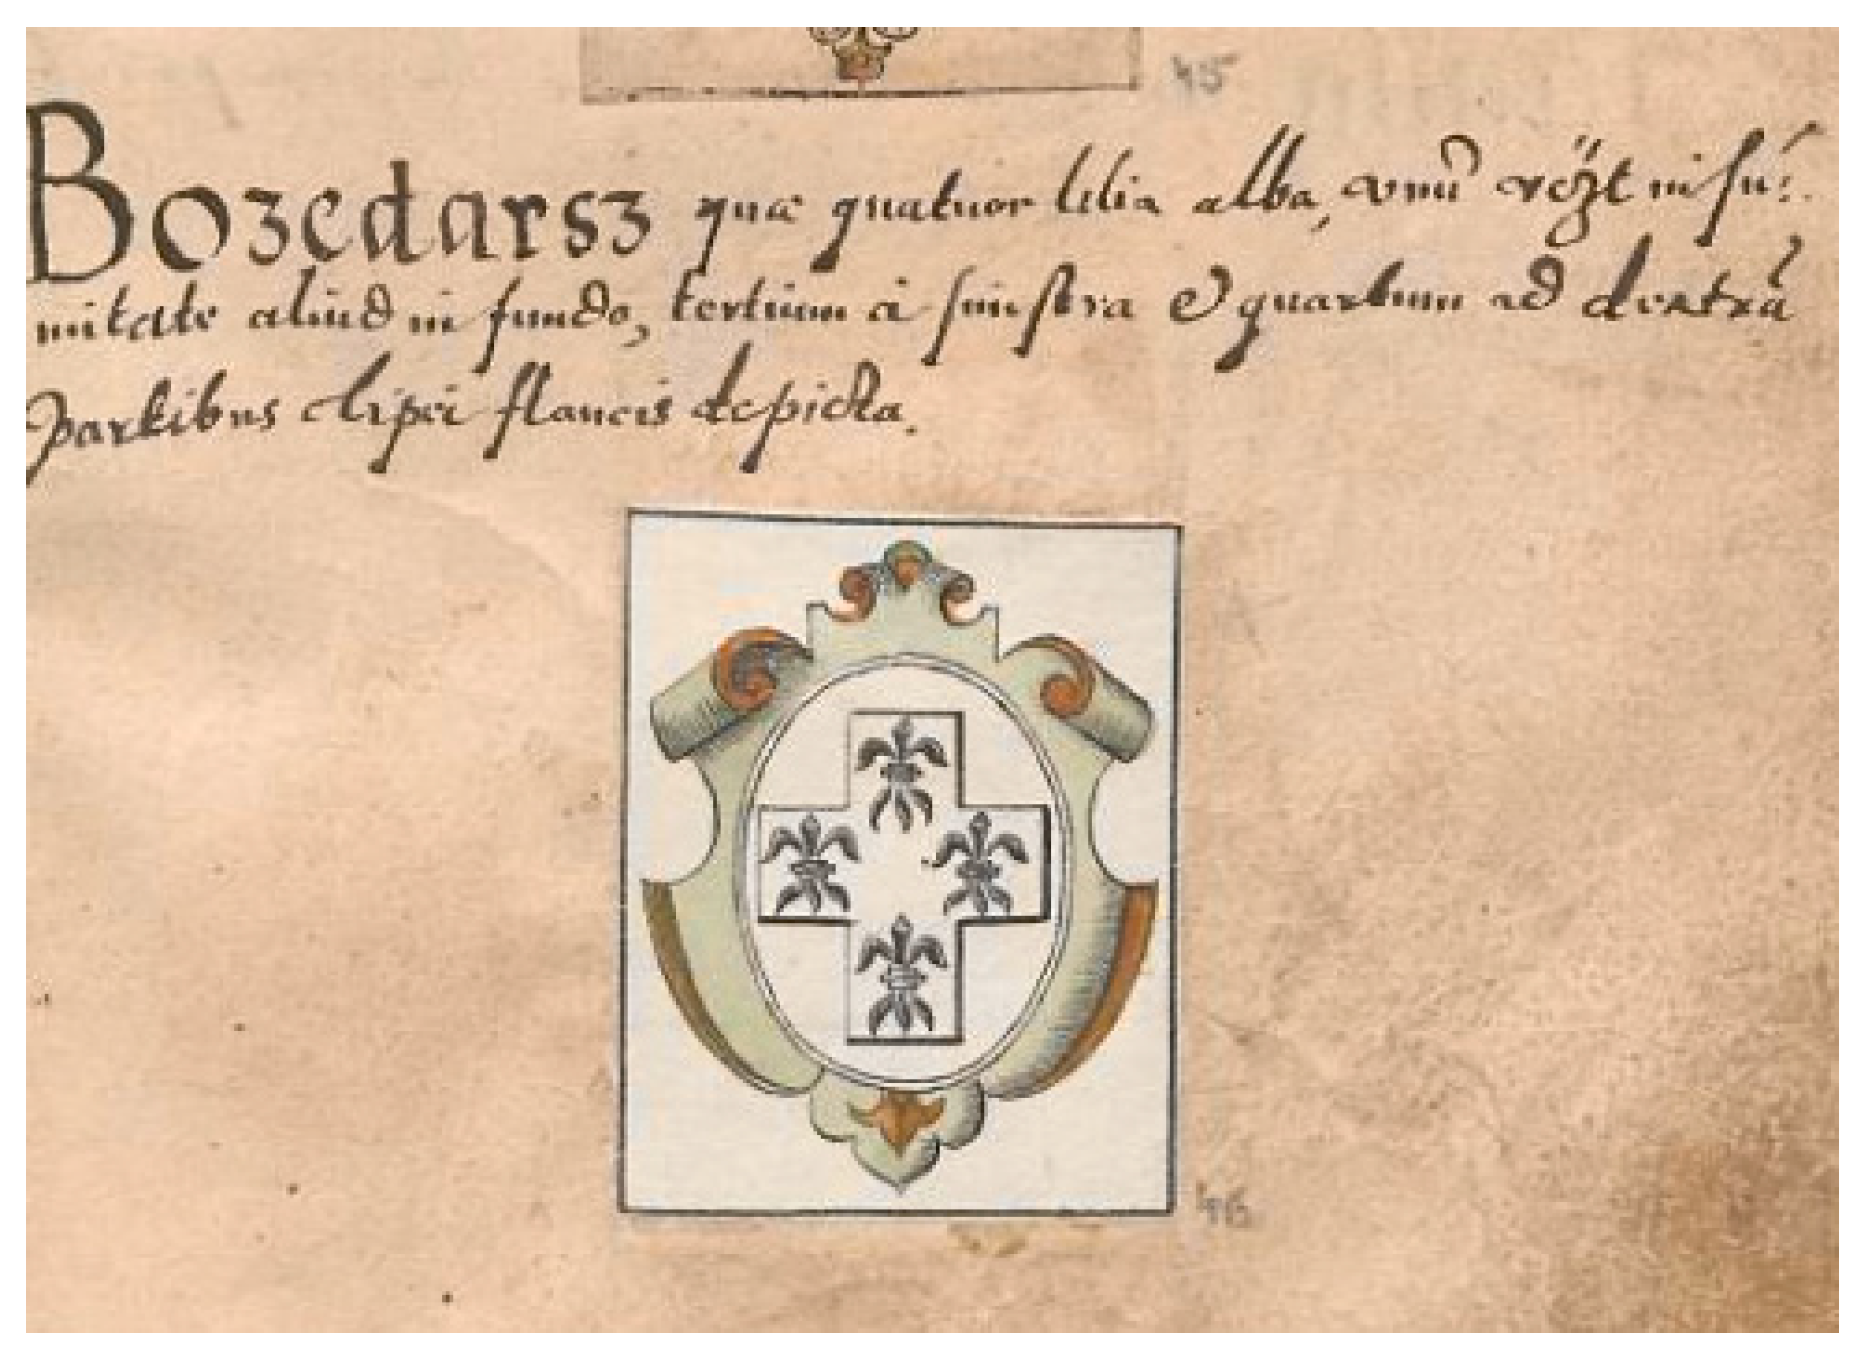 45
Bozedarsz quæ quatuor lilia alba, vnũ in su:
mitate aliud in fundo, tertium a sinistra & quartum ad dextrã
partibus clipei flancis depicta.